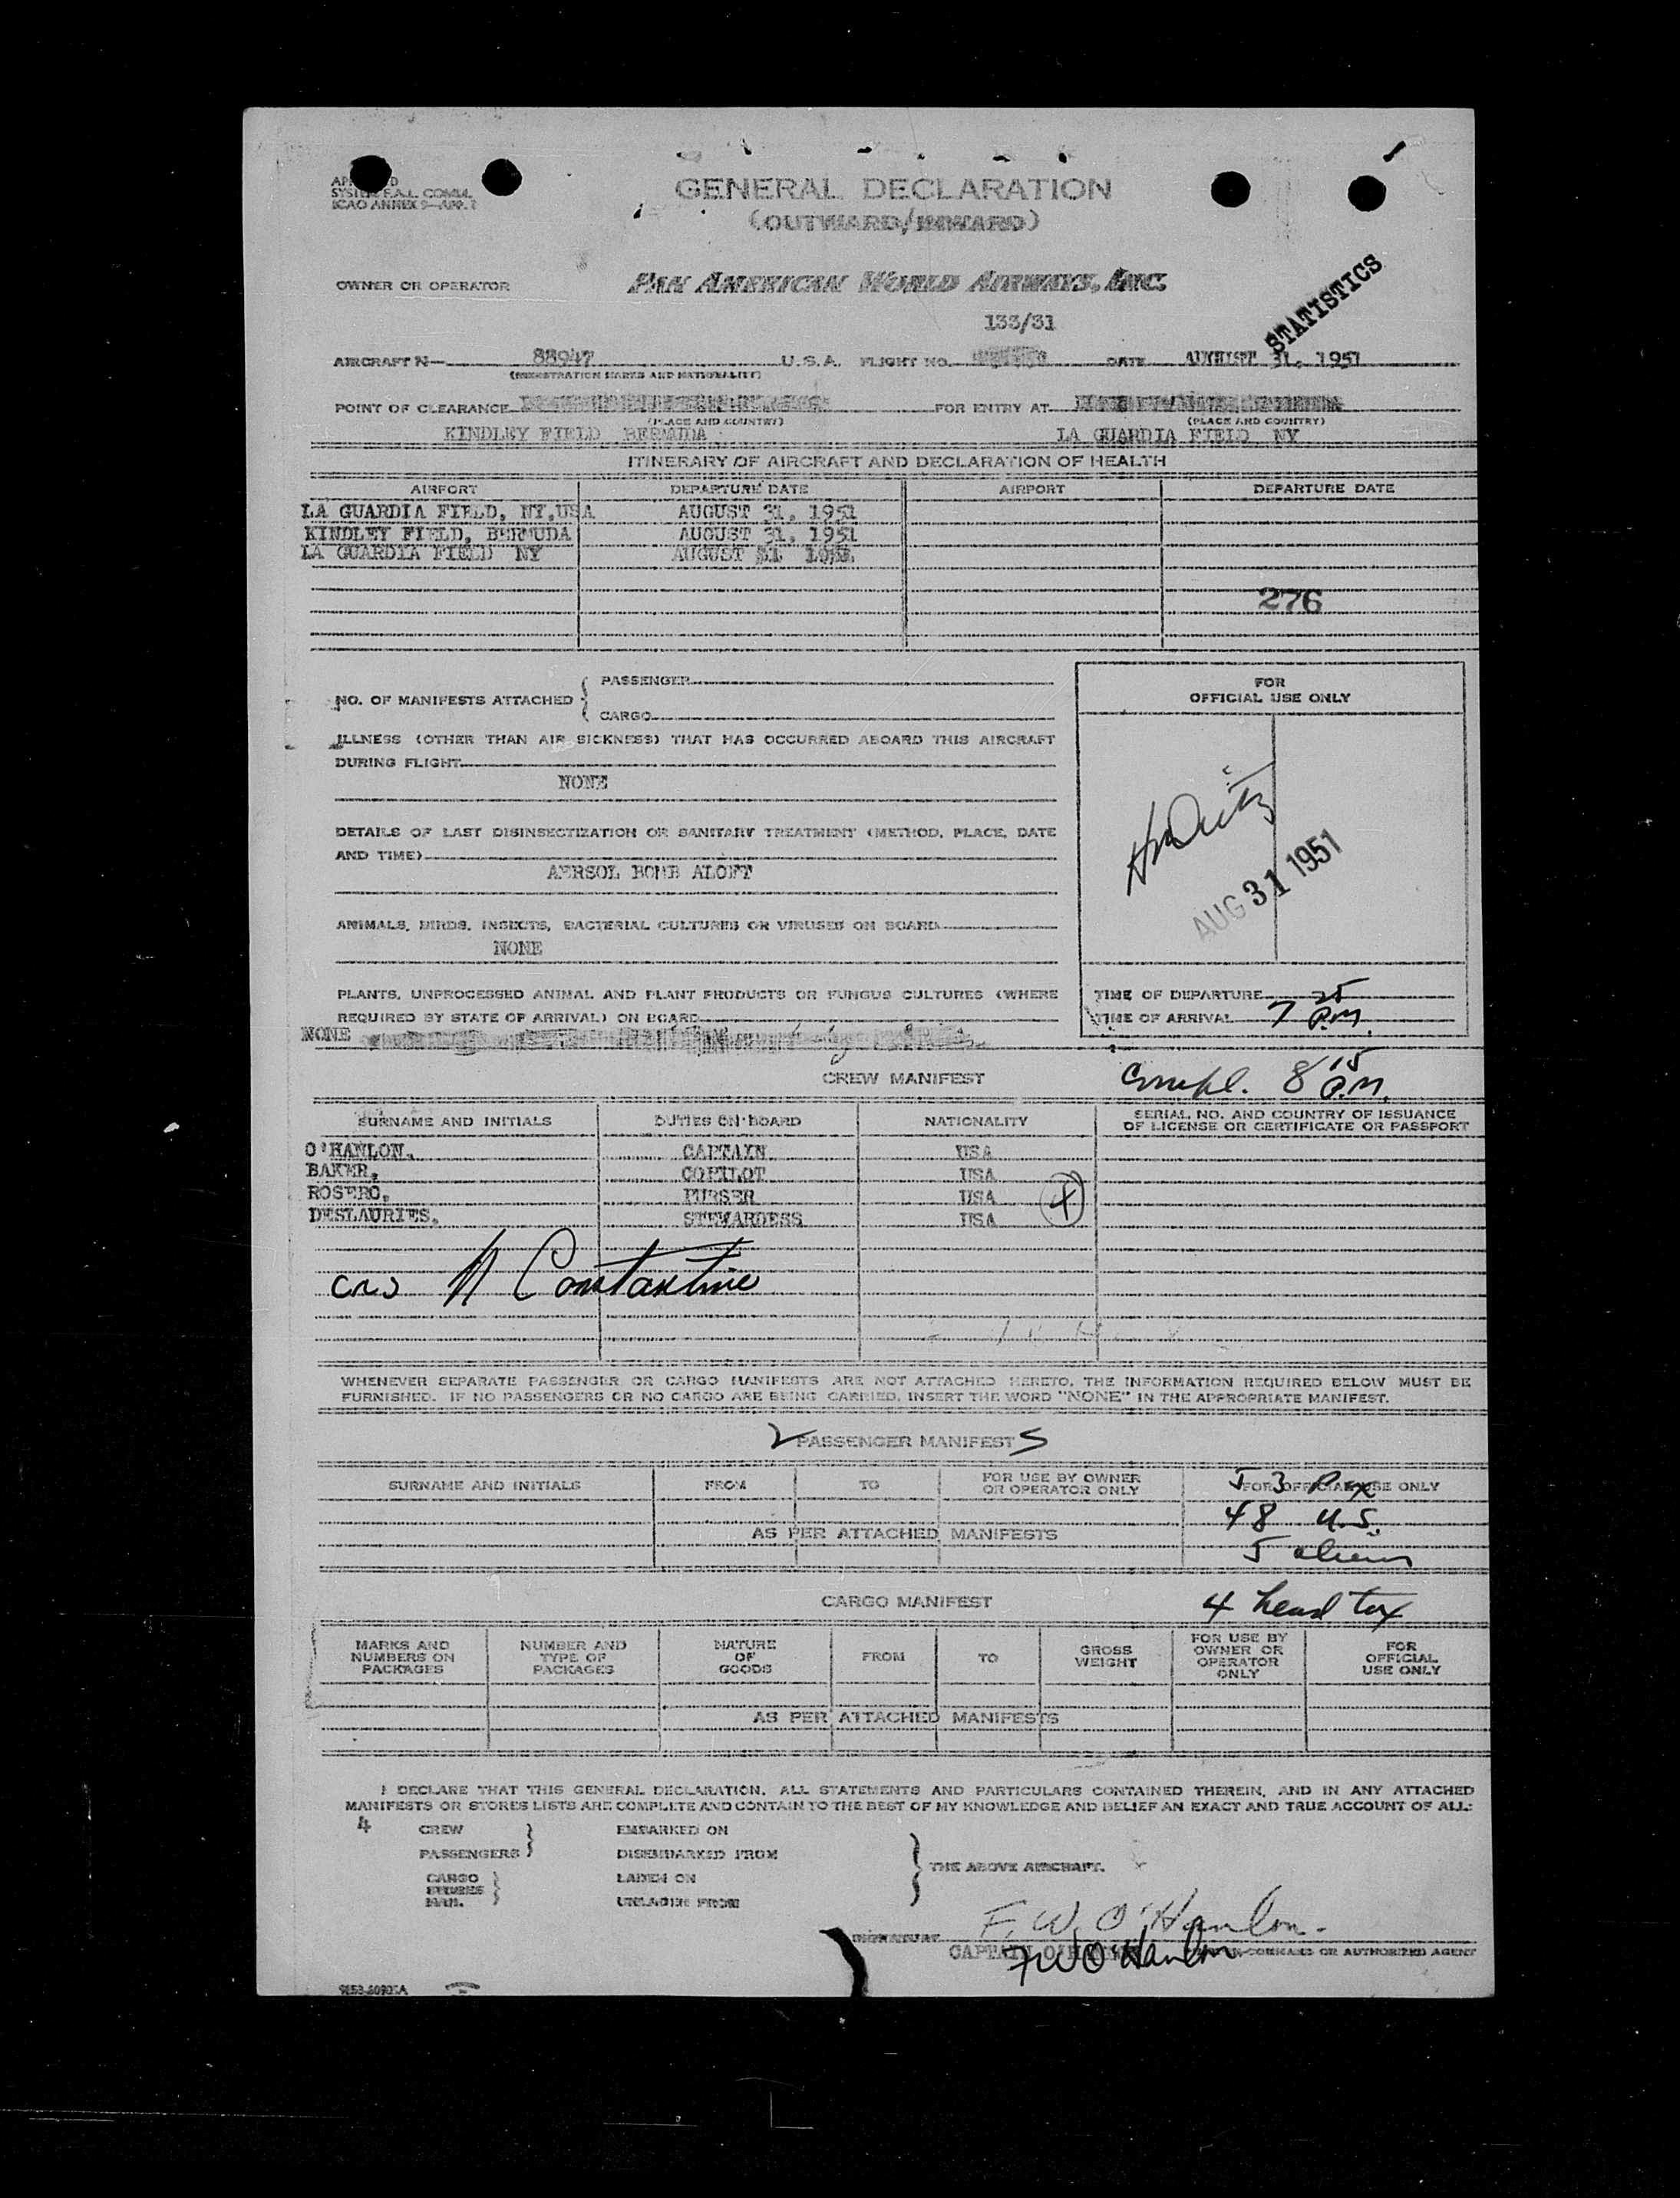 SYSTEM F.A.L. COMM.
ICAO ANNEX 9—APP. 2
GENERAL DECLARATION
(OUTWARD/INWARD)
OWNER OR OPERATOR PAN AMERICAN WORLD AIRWAYS, INC.
STATISTICS
133/31
AIRCRAFT N— 88947 U.S.A. FLIGHT NO. DATE AUGUST 31, 1951
(REGISTRATION MARKS AND NATIONALITY)
POINT OF CLEARANCE FOR ENTRY AT
(PLACE AND COUNTRY) (PLACE AND COUNTRY)
KINDLEY FIELD BERMUDA LA GUARDIA FIELD NY
ITINERARY OF AIRCRAFT AND DECLARATION OF HEALTH
AIRPORT DEPARTURE DATE AIRPORT DEPARTURE DATE
LA GUARDIA FIELD, NY,USA AUGUST 31, 1951
KINDLEY FIELD, BERMUDA AUGUST 31, 1951
LA GUARDIA FIELD NY AUGUST 31
276
NO. OF MANIFESTS ATTACHED { PASSENGER
CARGO
FOR
OFFICIAL USE ONLY
ILLNESS (OTHER THAN AIR SICKNESS) THAT HAS OCCURRED ABOARD THIS AIRCRAFT
DURING FLIGHT
NONE
DETAILS OF LAST DISINSECTIZATION OR SANITARY TREATMENT (METHOD, PLACE, DATE
AND TIME)
AERSOL BOMB ALOFT
AUG 31 1951
ANIMALS, BIRDS, INSECTS, BACTERIAL CULTURES OR VIRUSES ON BOARD
NONE
PLANTS, UNPROCESSED ANIMAL AND PLANT PRODUCTS OR FUNGUS CULTURES (WHERE
REQUIRED BY STATE OF ARRIVAL) ON BOARD
NONE
TIME OF DEPARTURE
TIME OF ARRIVAL 7 25 P.M.
compl. 8 15 P.M.
CREW MANIFEST
SURNAME AND INITIALS DUTIES ON BOARD NATIONALITY SERIAL NO. AND COUNTRY OF ISSUANCE
OF LICENSE OR CERTIFICATE OR PASSPORT
O'HANLON, CAPTAIN USA
BAKER, COPILOT USA
ROSERO, PURSER USA 4
DESLAURIES, STEWARDESS USA
N Constantine
WHENEVER SEPARATE PASSENGER OR CARGO MANIFESTS ARE NOT ATTACHED HERETO, THE INFORMATION REQUIRED BELOW MUST BE
FURNISHED. IF NO PASSENGERS OR NO CARGO ARE BEING CARRIED, INSERT THE WORD "NONE" IN THE APPROPRIATE MANIFEST.
2 PASSENGER MANIFEST S
SURNAME AND INITIALS FROM TO FOR USE BY OWNER
OR OPERATOR ONLY FOR OFFICIAL USE ONLY
53 Pax
48 U.S.
5 aliens
AS PER ATTACHED MANIFESTS
CARGO MANIFEST 4 head tax
MARKS AND
NUMBERS ON
PACKAGES
NUMBER AND
TYPE OF
PACKAGES
NATURE
OF
GOODS
FROM TO GROSS
WEIGHT
FOR USE BY
OWNER OR
OPERATOR
ONLY
FOR
OFFICIAL
USE ONLY
AS PER ATTACHED MANIFESTS
I DECLARE THAT THIS GENERAL DECLARATION, ALL STATEMENTS AND PARTICULARS CONTAINED THEREIN, AND IN ANY ATTACHED
MANIFESTS OR STORES LISTS ARE COMPLETE AND CONTAIN TO THE BEST OF MY KNOWLEDGE AND BELIEF AN EXACT AND TRUE ACCOUNT OF ALL:
4 CREW EMBARKED ON
PASSENGERS DISEMBARKED FROM
THE ABOVE AIRCRAFT.
CARGO LADEN ON
STORES
MAIL UNLADEN FROM
F. W. O'Hanlon.
SIGNATURE
CAPTAIN O'HANLON COMMAND OR AUTHORIZED AGENT
FWO'Hanlon